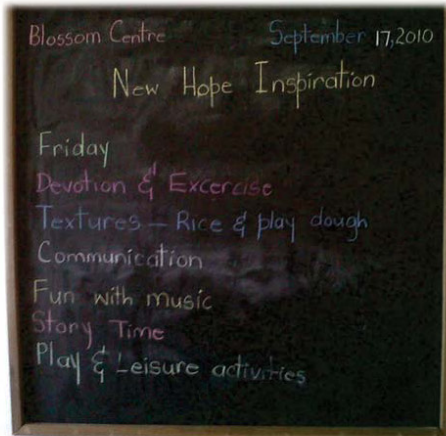 Blossom Centre September 17,2010
New Hope Inspiration
Friday
Devotion & Excercise
Textures – Rice & play dough
Communication
Fun with music
Story Time
Play & Leisure activities